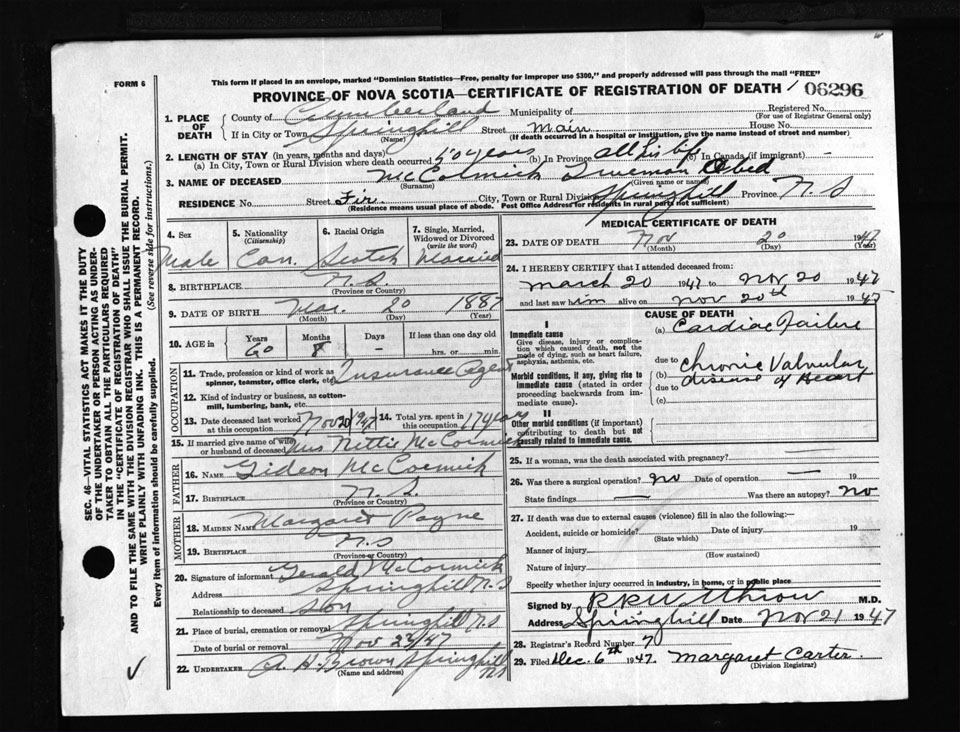 FORM 6
This form if placed in an envelope, marked "Dominion Statistics—Free, penalty for improper use $300," and properly addressed will pass through the mail "FREE"
PROVINCE OF NOVA SCOTIA—CERTIFICATE OF REGISTRATION OF DEATH 06296
1. PLACE OF DEATH
County of Cumberland Municipality of Registered No.
(For use of Registrar General only)
If in City or Town Springhill Street Main House No.
(Name) (If death occurred in a hospital or institution, give the name instead of street and number)
2. LENGTH OF STAY (in years, months and days)
(a) In City, Town or Rural Division where death occurred 50 years (b) In Province all his life (c) In Canada (if immigrant) -
3. NAME OF DECEASED McCormick Trueman Obed
(Surname) (Given name or names)
RESIDENCE No. Street Fir City, Town or Rural Division Springhill Province N.S
(Residence means usual place of abode. Post Office Address for residents in rural parts not sufficient)
4. Sex Male
5. Nationality (Citizenship) Can.
6. Racial Origin Scotch
7. Single, Married, Widowed or Divorced (write the word) Married
8. BIRTHPLACE N.S.
(Province or Country)
9. DATE OF BIRTH Mar. 20 1887
(Month) (Day) (Year)
10. AGE in Years 60 Months 8 Days - If less than one day old
hrs. or min.
OCCUPATION
11. Trade, profession or kind of work as spinner, teamster, office clerk, etc. Insurance Agent
12. Kind of industry or business, as cotton-mill, lumbering, bank, etc.
13. Date deceased last worked at this occupation Nov 20 1947
14. Total yrs. spent in this occupation 17 years
15. If married give name of wife or husband of deceased Mrs Nettie McCormick
FATHER
16. NAME Gideon McCormick
17. BIRTHPLACE N.S.
(Province or Country)
MOTHER
18. MAIDEN NAME Margaret Payne
19. BIRTHPLACE N.S
(Province or Country)
20. Signature of informant Gerald McCormick
Address Springhill N.S
Relationship to deceased Son
21. Place of burial, cremation or removal Springhill N.S
Date of burial or removal Nov 23/47
22. UNDERTAKER A. H. Brown Springhill NS
(Name and address)
MEDICAL CERTIFICATE OF DEATH
23. DATE OF DEATH Nov 20 1947
(Month) (Day) (Year)
24. I HEREBY CERTIFY that I attended deceased from:
March 20 1947 to Nov 20 1947
and last saw him alive on Nov 20th 1947
CAUSE OF DEATH
I
Immediate cause
Give disease, injury or complication which caused death, not the mode of dying, such as heart failure, asphyxia, asthenia, etc.
(a) Cardiac Failure
due to
Morbid conditions, if any, giving rise to immediate cause (stated in order proceeding backwards from immediate cause).
(b) Chronic Valvular disease of Heart
due to
(c)
II
Other morbid conditions (if important) contributing to death but not causally related to immediate cause.
25. If a woman, was the death associated with pregnancy?
26. Was there a surgical operation? no Date of operation —
State findings — Was there an autopsy? no
27. If death was due to external causes (violence) fill in also the following:—
Accident, suicide or homicide? Date of injury 19
(State which)
Manner of injury
(How sustained)
Nature of injury
Specify whether injury occurred in industry, in home, or in public place
Signed by M.D.
Address Springhill Date Nov 21 1947
28. Registrar's Record Number 7
29. Filed Dec. 6th 1947. Margaret Carter.
(Division Registrar)
SEC. 46—VITAL STATISTICS ACT MAKES IT THE DUTY
OF THE UNDERTAKER OR PERSON ACTING AS UNDER-
TAKER TO OBTAIN ALL THE PARTICULARS REQUIRED
IN THE "CERTIFICATE OF REGISTRATION OF DEATH"
AND TO FILE THE SAME WITH THE DIVISION REGISTRAR WHO SHALL ISSUE THE BURIAL PERMIT.
WRITE PLAINLY WITH UNFADING INK. THIS IS A PERMANENT RECORD.
Every item of information should be carefully supplied. (See reverse side for instructions.)